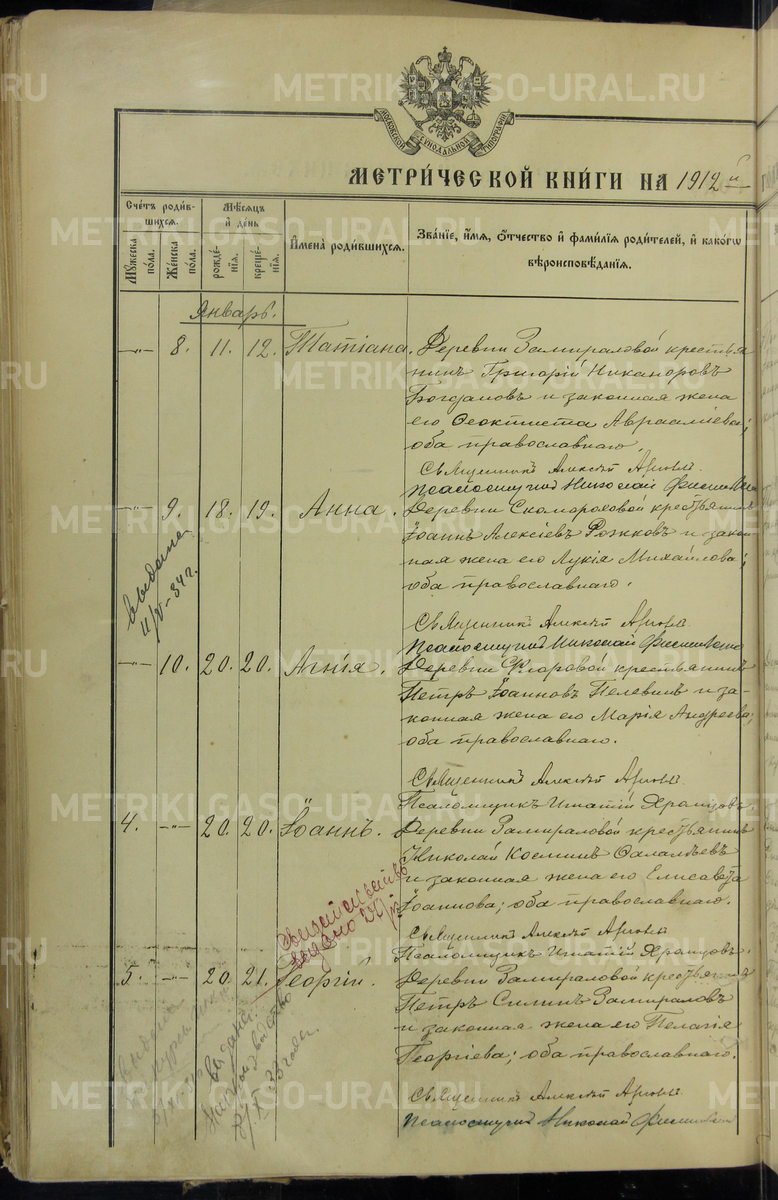 МОСКОВСКОЙ СѴНОДАЛЬНОЙ ТИПОГРАФІИ
МЕТРИ́ЧЕСКОЙ КНИ́ГИ НА 1912 й
Сче́тъ роди́в-
шихся.
Му́жеска по́ла.
Же́нска по́ла.
Мѣ́сяцъ
и҆ де́нь
рожде́-
нїѧ.
креще́-
нїѧ.
И҆мена̀ роди́вшихся.
Зва́нїе, и҆́мѧ, ѻ҆́тчество и҆ фами́лїѧ роди́телей, и҆ како́гѡ
вѣроисповѣ́данїѧ.
Январь.
-„- 8. 11. 12. Татіана. Деревни Замираловой крестья
нинъ Григорій Никаноровъ
Богдановъ и законная жена
его Феоктиста Авраамiева;
оба православнаго.
Священникъ Алексѣй
Псаломщикъ Николай
-„- 9. 18. 19. Анна. Деревни Скомороховой крестьянинъ
Іоаннъ Алексіевъ Рожковъ и закон
ная жена его Лукія Михайлова;
оба православнаго.
Выдана
11/V-34 г.
Священникъ Алексѣй
Псаломщикъ Николай
-„- 10. 20. 20. Агнія. Деревни крестьянинъ
Петръ Іоанновъ Пелевинъ и за-
конная жена его Марія Андреева;
оба православнаго.
Священникъ Алексѣй
Псаломщикъ Игнатій Храмцовъ.
4. -„- 20. 20. Іоаннъ. Деревни Замираловой крестьянинъ
Николай Косминъ
и законная жена его Елисавета
Іоаннова; оба православнаго.
Свидѣтельство
выдано
Священникъ Алексѣй
Псаломщикъ Игнатій Храмцовъ.
5. -„- 20. 21. Георгій. Деревни Замираловой крестьянинъ
Петръ Силинъ Замираловъ
и законная жена его Пелагія
Георгіева; оба православнаго.
Выдана
33 года.
Священникъ Алексѣй
Псаломщикъ Николай
METRIKI.GASO-URAL.RU